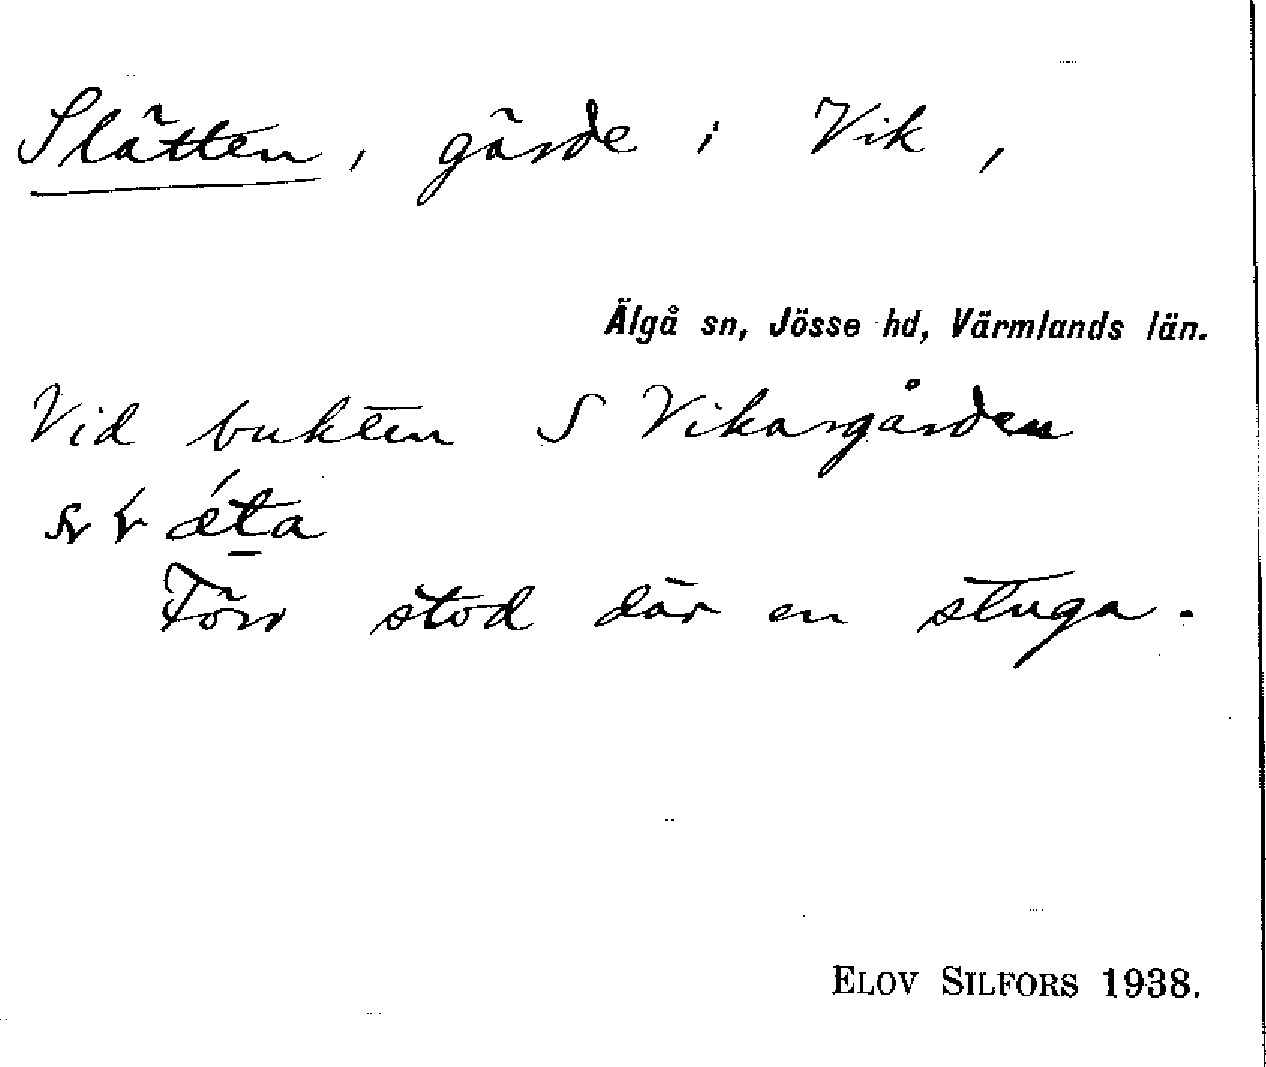 Slätten, gärde i Vik,
Älgå sn, Jösse hd, Värmlands län.
Vid bukten S Vikargården
Förr stod där en stuga.
ELOV SILFORS 1938.